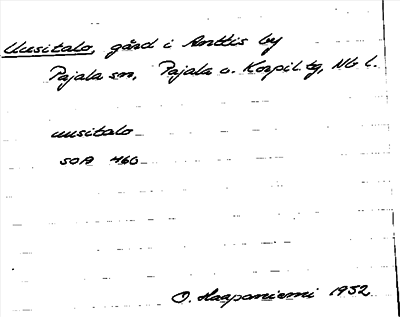 Uusitalo, gård i Anttis by
Pajala sn, Pajala o. Korpil. tg, Nb l.
uusitalo
SOA 460
O. Haapaniemi 1932